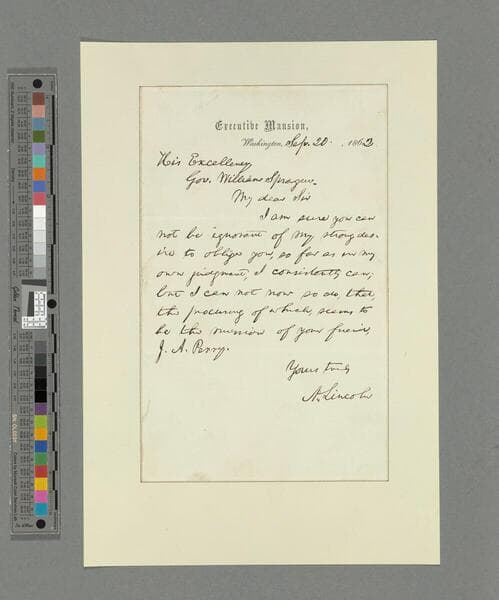 Executive Mansion,
Washington, Sep. 20. , 1862
His Excellency
Gov. William Sprague.
My dear Sir
I am sure you can
not be ignorant of my strong des-
ire to oblige you, so far as in my
own judgment, I consistently can;
but I can not now so do, that,
the procuring of which, seems to
be the mission of your friend,
J. A. Perry.
Yours truly
A. Lincoln